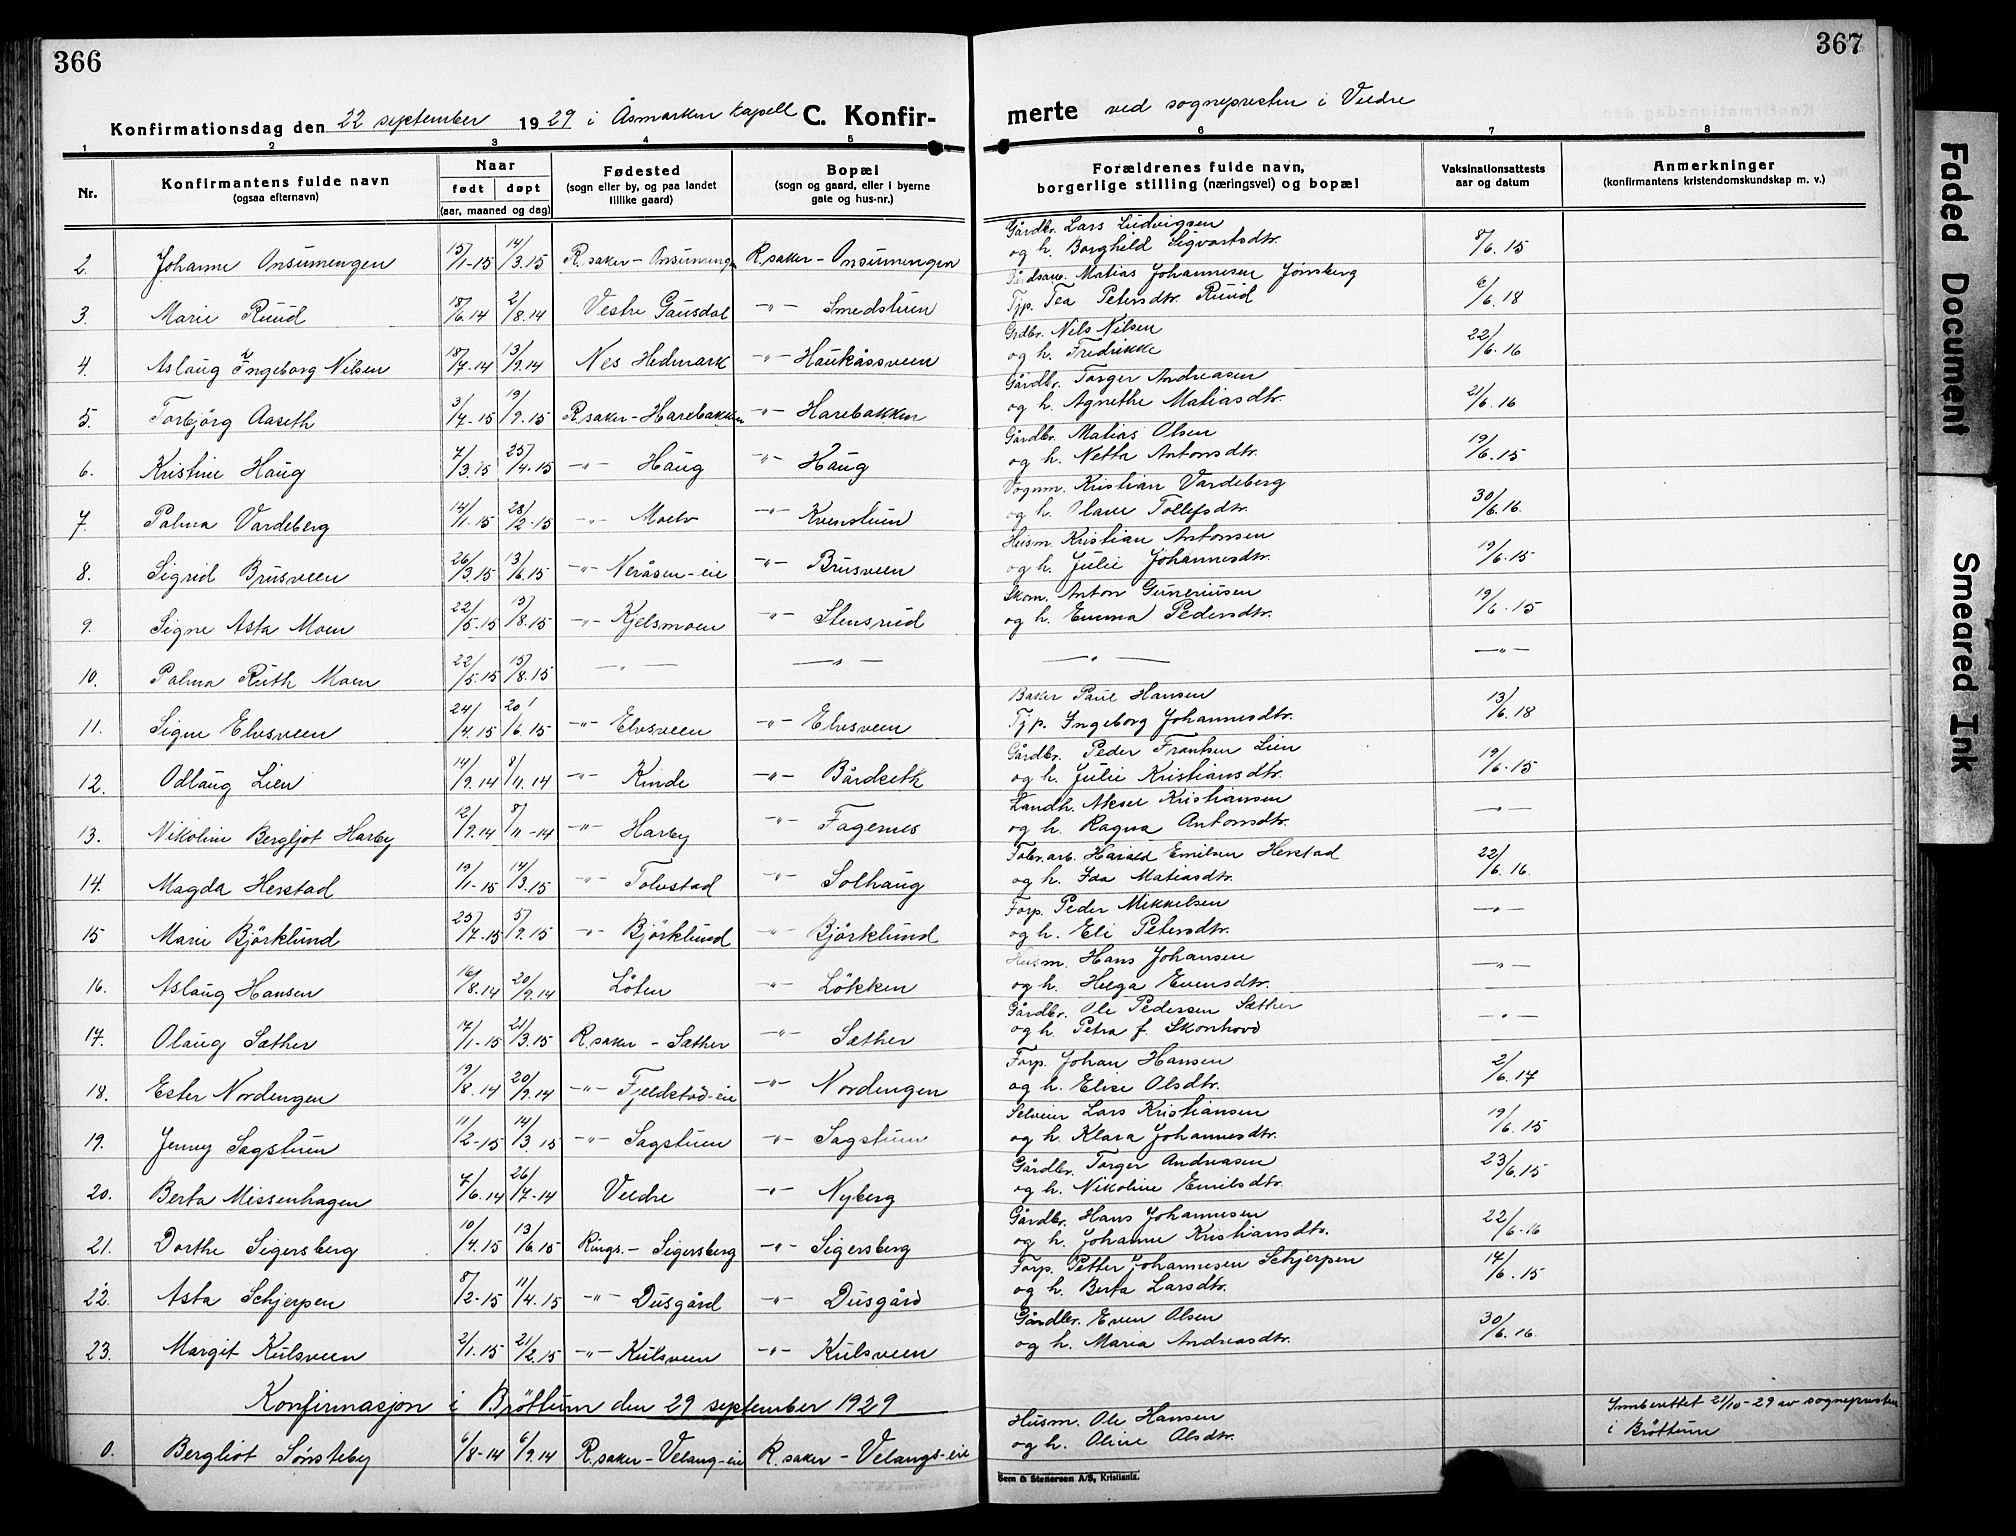 366
367
Konfirmationsdag den 22 september 1929 i Åsmarken kapell C. Konfir-
merte ved sognepresten i Veldre
1 2 3 4 5 6 7 8
Nr. Konfirmantens fulde navn (ogsaa efternavn) Naar født døpt (aar, maaned og dag) Fødested (sogn eller by, og paa landet tillike gaard) Bopæl (sogn og gaard, eller i byerne gate og hus-nr.) Forældrenes fulde navn, borgerlige stilling (næringsvei) og bopæl Vaksinationsattests aar og datum Anmerkninger (konfirmantens kristendomskundskap m. v.)
2. Johanne Onsumengen 15/1-15 14/3.15 R.saker - Onsumengen R.saker - Onsumengen Gårdbr. Lars Ludvigsen og h. Borghild Sigvartsdtr. 8/6.15
3. Marie Ruud 18/6.14 2/8.14 Vestre Gausdal -"- Smedstuen Gårdsarb. Matias Johannesen Jønsberg Tjp. Tea Petersdtr. Ruud 6/6.18
4. Aslaug Ingeborg Nilsen 18/7.14 13/9.14 Nes Hedmark -"- Haukåssveen Grdbr. Nels Nilsen og h. Fredrikke 22/6.16
5. Torbjörg Aaseth 3/7-15 19/9.15 R.saker - Harebakken -"- Harebakken Gårdbr. Torger Andreasen og h. Agnethe Matiasdtr. 21/6.16
6. Kristine Haug 7/3.15 25/4.15 -"- Haug -"- Haug Gårdbr. Matias Olsen og h. Netta Antonsdtr. 19/6.15
7. Palma Vardeberg 14/11-15 28/2-15 -"- Moelv -"- Kvenstuen Vognm. Kristian Vardeberg og h. Olave Tollefsdtr. 30/6.16.
8. Sigrid Brusveen 26/3.15 13/6.15 -"- Neråsen-eie -"- Brusveen Husm. Kristian Antonsen og h. Julie Johannesdtr. 19/6.15
9. Signe Asta Moen 22/5.15 15/8.15 -"- Kjelsmoen -"- Stensrud Skom. Anton Guneriusen og h. Emma Pedersdtr. 19/6.15
10. Palma Ruth Moen 22/5.15 15/8.15 -"- -"- -"- -"-
11. Signe Elvsveen 24/4.15 20/6.15 -"- Elvsveen -"- Elvsveen Baker Paul Hansen Tjp. Ingeborg Johannesdtr. 13/6.18
12. Odlaug Lien 14/9.14 8/11.14 -"- Kinde -"- Bårdseth Gårdbr. Peder Frantsen Lien og h. Julie Kristiansdtr. 19/6-15
13. Nikoline Bergljot Harby 12/9.14 8/11-14 -"- Harby -"- Fagernes Landh. Aksel Kristiansen og h. Ragna Antonsdtr. -"-
14. Magda Herstad 19/1-15 14/3.15 -"- Tolvstad -"- Solhaug Fabr.arb. Harald Emilsen Herstad og h. Ida Matiasdtr. 22/6.16.
15 Marie Björklund 25/7-15 5/9.15 -"- Björklund -"- Björklund Forp. Peder Mikkelsen og h. Eli Petersdtr. -"-
16. Aslaug Hansen 16/8.14 20/9.14 Löten -"- Lökken Husm. Hans Johansen og h. Helga Evensdtr. -"-
17. Olaug Sæther 17/1-15 21/3.15 R.saker - Sæther -"- Sæther Gårdbr. Ole Pedersen Sæther og h. Petra f. Skonhovd -"-
18. Ester Nordengen 19/8.14 20/9.14 -"- Fjeldstad-eie -"- Nordengen Forp. Johan Hansen og h. Elise Olsdtr. 2/6.17
19. Jenny Sagstuen 11/2-15 14/3.15 -"- Sagstuen -"- Sagstuen Selveier Lars Kristiansen og h. Klara Johannesdtr. 19/6.15
20. Berta Missenhagen 7/6.14 26/7-14 Veldre -"- Nyberg Gårdbr. Torger Andreasen og h. Nikoline Emilsdtr. 23/6.15
21. Dorthe Sigersberg 10/4.15 13/6.15 Rings. - Sigersberg -"- Sigersberg Gårdbr. Hans Johannesen og h. Johanne Kristiansdtr. 22/6-16
22. Asta Schjerpen 8/2-15 11/4.15 -"- Dusgård -"- Dusgård Forp. Petter Johannesen Schjerpen og h. Berta Larsdtr. 14/6.15
23. Margit Kulsveen 2/1.15 21/2.15 -"- Kulsveen -"- Kulsveen Gårdbr. Even Olsen og h. Maria Andreasdtr. 30/6.16.
Konfirmasjon i Bröttum den 29 september 1929
Innberettet 21/10-29 av sognepresten i Bröttum
0. Bergliot Sønsteby 6/8-14 6/9.14 R.saker - Velang-eie R.saker - Velangs-eie Husm. Ole Hansen og h. Oline Olsdtr.
Sem & Stenersen A/S, Kristiania.
Faded Document
Smeared Ink